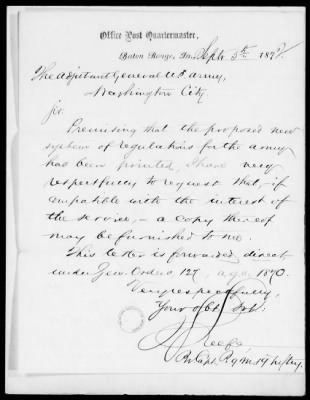 Office Post Quartermaster,
Baton Rouge, La. Sept 5th 187
The Adjutant General U.S. Army,
Washington City.
Sir:
Premising that the proposed new
system of regulations for the army
has been printed, I have very
respectfully to request that, if
compatible with the interest of
the service, - a copy thereof
may be furnished to me.
This letter is forwarded direct
under Gen. Orders 127, A.G.O. 1870.
Very respectfully,
Your obt. Svt:
Keefe
Capt. 19th Infty.